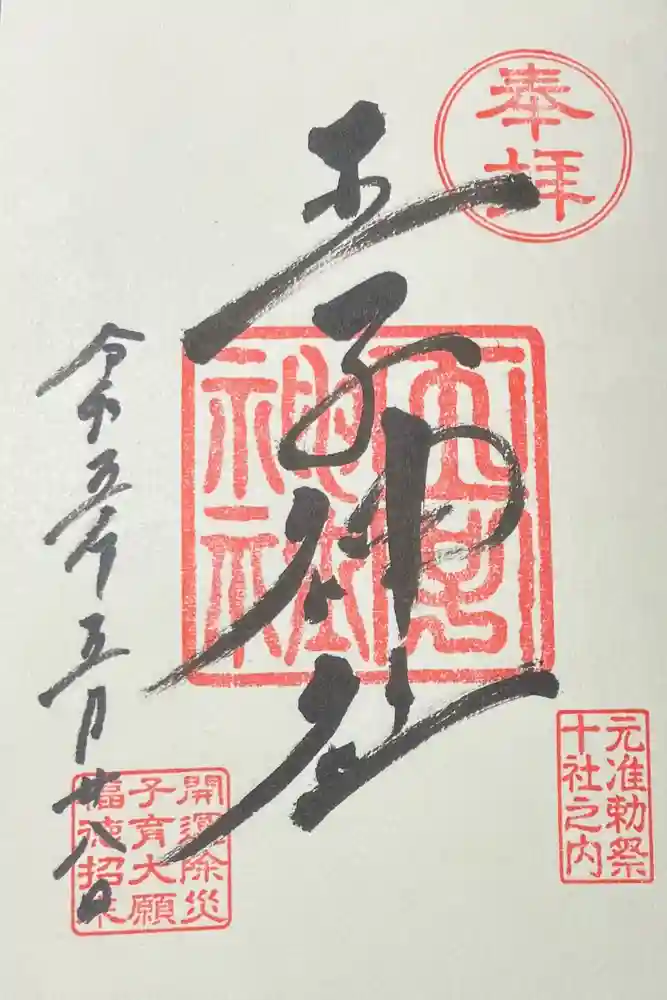 奉拝
元准勅祭
十社之内
王子神社
開運除災
子育大願
福徳招来
令和五年五月廿八日